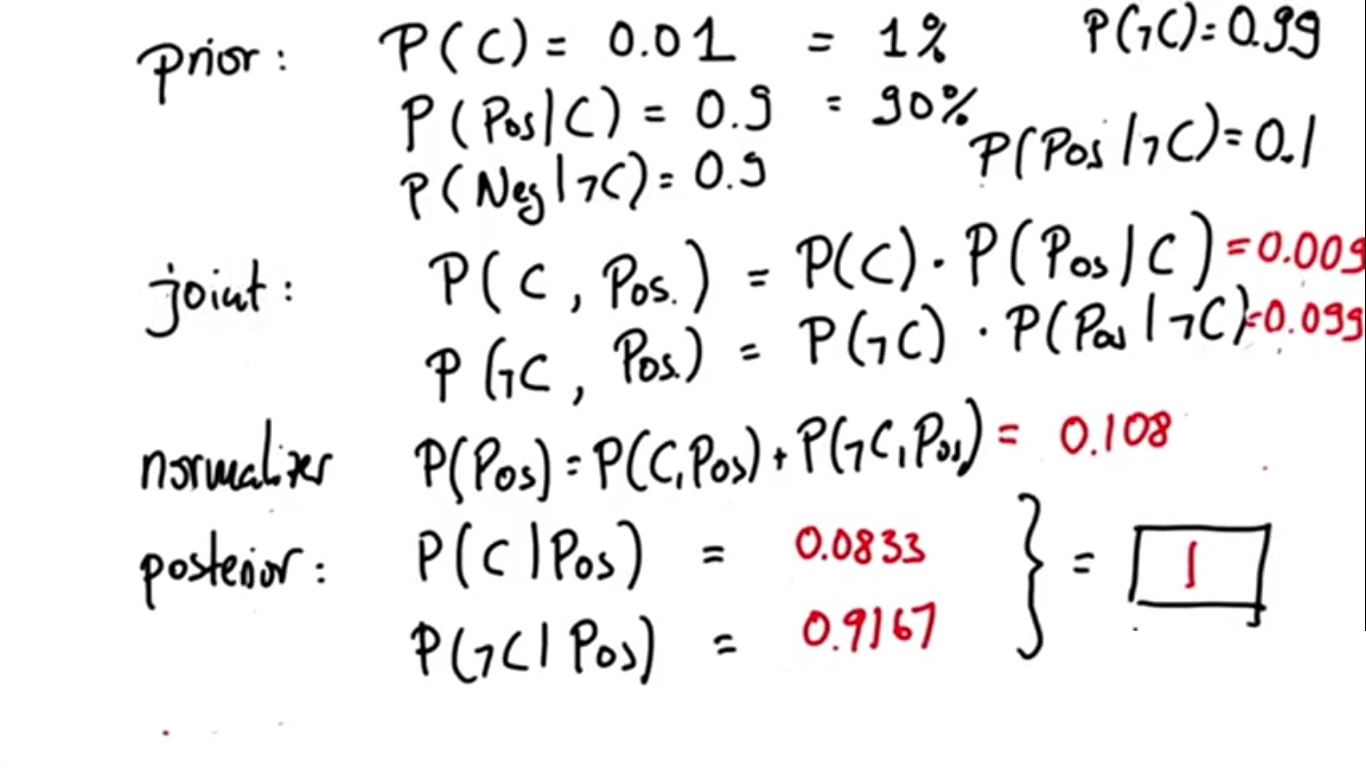 prior: P(C) = 0.01 = 1% P(¬C) = 0.99
P(Pos|C) = 0.9 = 90%
P(Pos|¬C) = 0.1
P(Neg|¬C) = 0.9
joint: P(C, Pos.) = P(C) · P(Pos|C) = 0.009
P(¬C, Pos.) = P(¬C) · P(Pos|¬C) = 0.099
normalizer P(Pos) = P(C,Pos) + P(¬C,Pos) = 0.108
posterior: P(C|Pos) = 0.0833
} = 1
P(¬C|Pos) = 0.9167